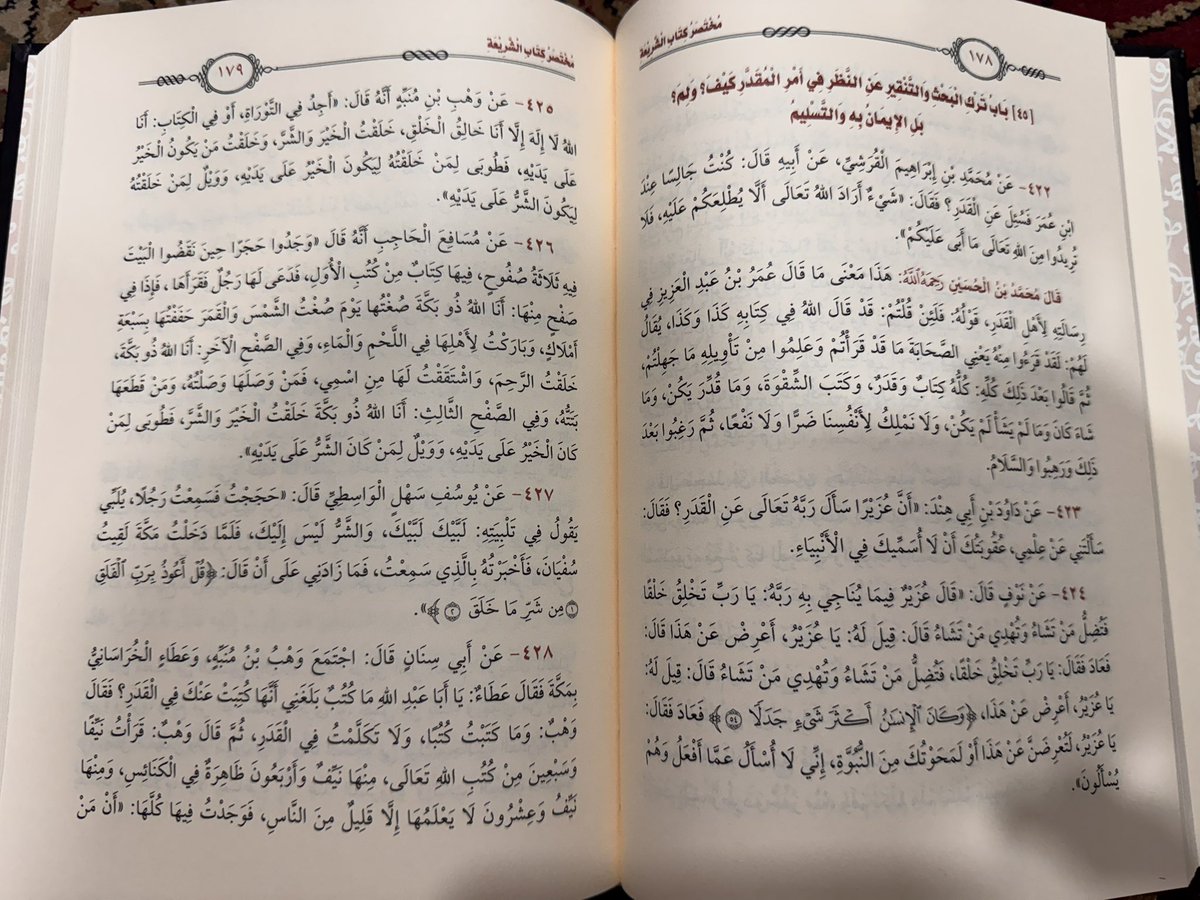 مُخْتَصَرُ كِتَابِ الشَّرِيْعَةِ
١٧٨
[٤٥] بَابُ تَرْكِ الْبَحْثِ وَالتَّنْقِيرِ عَنِ النَّظَرِ فِي أَمْرِ الْمُقَدَّرِ كَيْفَ؟ وَلِمَ؟
بَلِ الإِيمَانُ بِهِ وَالتَّسْلِيمُ
٤٢٢- عَنْ مُحَمَّدِ بْنِ إِبْرَاهِيمَ الْقُرَشِيِّ، عَنْ أَبِيهِ قَالَ: كُنْتُ جَالِسًا عِنْدَ
ابْنِ عُمَرَ فَسُئِلَ عَنِ الْقَدَرِ؟ فَقَالَ: «شَيْءٌ أَرَادَ اللهُ تَعَالَى أَلَّا يُطْلِعَكُمْ عَلَيْهِ، فَلَا
تُرِيدُوا مِنَ اللهِ تَعَالَى مَا أَبَى عَلَيْكُمْ».
قَالَ مُحَمَّدُ بْنُ الْحُسَيْنِ رَحِمَهُ اللَّهُ: هَذَا مَعْنَى مَا قَالَ عُمَرُ بْنُ عَبْدِ الْعَزِيزِ فِي
رِسَالَتِهِ لِأَهْلِ الْقَدَرِ، قَوْلُهُ: فَلَئِنْ قُلْتُمْ: قَدْ قَالَ اللهُ فِي كِتَابِهِ كَذَا وَكَذَا، يُقَالُ
لَهُمْ: لَقَدْ قَرَءُوا مِنْهُ يَعْنِي الصَّحَابَةَ مَا قَدْ قَرَأْتُمْ وَعَلِمُوا مِنْ تَأْوِيلِهِ مَا جَهِلْتُمْ،
ثُمَّ قَالُوا بَعْدَ ذَلِكَ كُلِّهِ: كُلُّهُ كِتَابٌ وَقَدَرٌ، وَكَتَبَ الشِّقْوَةَ، وَمَا قُدِّرَ يَكُنْ، وَمَا
شَاءَ كَانَ وَمَا لَمْ يَشَأْ لَمْ يَكُنْ، وَلَا نَمْلِكُ لِأَنْفُسِنَا ضَرًّا وَلَا نَفْعًا، ثُمَّ رَغِبُوا بَعْدَ
ذَلِكَ وَرَهِبُوا وَالسَّلَامُ.
٤٢٣- عَنْ دَاوُدَ بْنِ أَبِي هِنْدَ: «أَنَّ عُزَيْرًا سَأَلَ رَبَّهُ تَعَالَى عَنِ الْقَدَرِ؟ فَقَالَ:
سَأَلْتَنِي عَنْ عِلْمِي، عُقُوبَتُكَ أَنْ لَا أُسَمِّيكَ فِي الْأَنْبِيَاءِ.
٤٢٤- عَنْ نَوْفٍ قَالَ: «قَالَ عُزَيْرٌ فِيمَا يُنَاجِي بِهِ رَبَّهُ: يَا رَبِّ تَخْلِقُ خَلْقًا
فَتُضِلُّ مَنْ تَشَاءُ وَتُهْدِي مَنْ تَشَاءُ قَالَ: قِيلَ لَهُ: يَا عُزَيْرُ، أَعْرِضْ عَنْ هَذَا قَالَ:
فَعَادَ فَقَالَ: يَا رَبِّ تَخْلِقُ خَلْقًا، فَتُضِلُّ مَنْ تَشَاءُ وَتُهْدِي مَنْ تَشَاءُ قَالَ: قِيلَ لَهُ:
يَا عُزَيْرُ، أَعْرِضْ عَنْ هَذَا، ﴿وَكَانَ ٱلْإِنسَٰنُ أَكْثَرَ شَىْءٍ جَدَلًا ٥٤﴾ فَعَادَ فَقَالَ:
يَا عُزَيْرُ، لَتُعْرِضَنَّ عَنْ هَذَا أَوْ لَمَحَوْتُكَ مِنَ النُّبُوَّةِ، إِنِّي لَا أُسْأَلُ عَمَّا أَفْعَلُ وَهُمْ
يُسْأَلُونَ».
مُخْتَصَرُ كِتَابِ الشَّرِيْعَةِ
١٧٩
٤٢٥- عَنْ وَهْبِ بْنِ مُنَبِّهٍ أَنَّهُ قَالَ: «أَجِدُ فِي التَّوْرَاةِ، أَوْ فِي الْكِتَابِ: أَنَا
اللهُ لَا إِلَهَ إِلَّا أَنَا خَالِقُ الْخَلْقِ، خَلَقْتُ الْخَيْرَ وَالشَّرَّ، وَخَلَقْتُ مَنْ يَكُونُ الْخَيْرُ
عَلَى يَدَيْهِ، فَطُوبَى لِمَنْ خَلَقْتُهُ لِيَكُونَ الْخَيْرُ عَلَى يَدَيْهِ، وَوَيْلٌ لِمَنْ خَلَقْتُهُ
لِيَكُونَ الشَّرُّ عَلَى يَدَيْهِ».
٤٢٦- عَنْ مُسَافِعَ الْحَاجِبِ أَنَّهُ قَالَ «وَجَدُوا حَجَرًا حِينَ نَقَضُوا الْبَيْتَ
فِيهِ ثَلَاثَةُ صُفُوحٍ، فِيهَا كِتَابٌ مِنْ كُتُبِ الْأُوَلِ، فَدَعَى لَهَا رَجُلٌ فَقَرَأَهَا ، فَإِذَا فِي
صَفْحٍ مِنْهَا: أَنَا اللهُ ذُو بَكَّةَ صُغْتُهَا يَوْمَ صُغْتُ الشَّمْسَ وَالْقَمَرَ حَفَفْتُهَا بِسَبْعَةِ
أَمْلَاكٍ، وَبَارَكْتُ لِأَهْلِهَا فِي اللَّحْمِ وَالْمَاءِ، وَفِي الصَّفْحِ الْآخَرِ: أَنَا اللهُ ذُو بَكَّةَ،
خَلَقْتُ الرَّحِمَ، وَاشْتَقَقْتُ لَهَا مِنِ اسْمِي، فَمَنْ وَصَلَهَا وَصَلْتُهُ، وَمَنْ قَطَعَهَا
بَتَتُّهُ، وَفِي الصَّفْحِ الثَّالِثِ: أَنَا اللهُ ذُو بَكَّةَ خَلَقْتُ الْخَيْرَ وَالشَّرَّ، فَطُوبَى لِمَنْ
كَانَ الْخَيْرُ عَلَى يَدَيْهِ، وَوَيْلٌ لِمَنْ كَانَ الشَّرُّ عَلَى يَدَيْهِ».
٤٢٧- عَنْ يُوسُفِ سَهْلِ الْوَاسِطِيِّ قَالَ: «حَجَجْتُ فَسَمِعْتُ رَجُلًا، يُلَبِّي
يَقُولُ فِي تَلْبِيَتِهِ: لَبَّيْكَ لَبَّيْكَ، وَالشَّرُّ لَيْسَ إِلَيْكَ، فَلَمَّا دَخَلْتُ مَكَّةَ لَقِيتُ
سُفْيَانَ، فَأَخْبَرْتُهُ بِالَّذِي سَمِعْتُ، فَمَا زَادَنِي عَلَى أَنْ قَالَ: ﴿قُلْ أَعُوذُ بِرَبِّ ٱلْفَلَقِ
١ مِن شَرِّ مَا خَلَقَ ٢﴾».
٤٢٨- عَنْ أَبِي سِنَانٍ قَالَ: اجْتَمَعَ وَهْبُ بْنُ مُنَبِّهٍ، وَعَطَاءٍ الْخُرَاسَانِيُّ
بِمَكَّةَ فَقَالَ عَطَاءٌ: يَا أَبَا عَبْدِ اللهِ مَا كُتُبٌ بَلَغَنِي أَنَّهَا كُتِبَتْ عَنْكَ فِي الْقَدَرِ؟ فَقَالَ
وَهْبٌ: وَمَا كَتَبْتُ كُتُبًا، وَلَا تَكَلَّمْتُ فِي الْقَدَرِ، ثُمَّ قَالَ وَهْبٌ: قَرَأْتُ نَيِّفًا
وَسَبْعِينَ مِنْ كُتُبِ اللهِ تَعَالَى، مِنْهَا نَيِّفٌ وَأَرْبَعُونَ ظَاهِرَةٌ فِي الْكَنَائِسِ، وَمِنْهَا
نَيِّفٌ وَعِشْرُونَ لَا يَعْلَمُهَا إِلَّا قَلِيلٌ مِنَ النَّاسِ، فَوَجَدْتُ فِيهَا كُلَّهَا: «أَنْ مَنْ